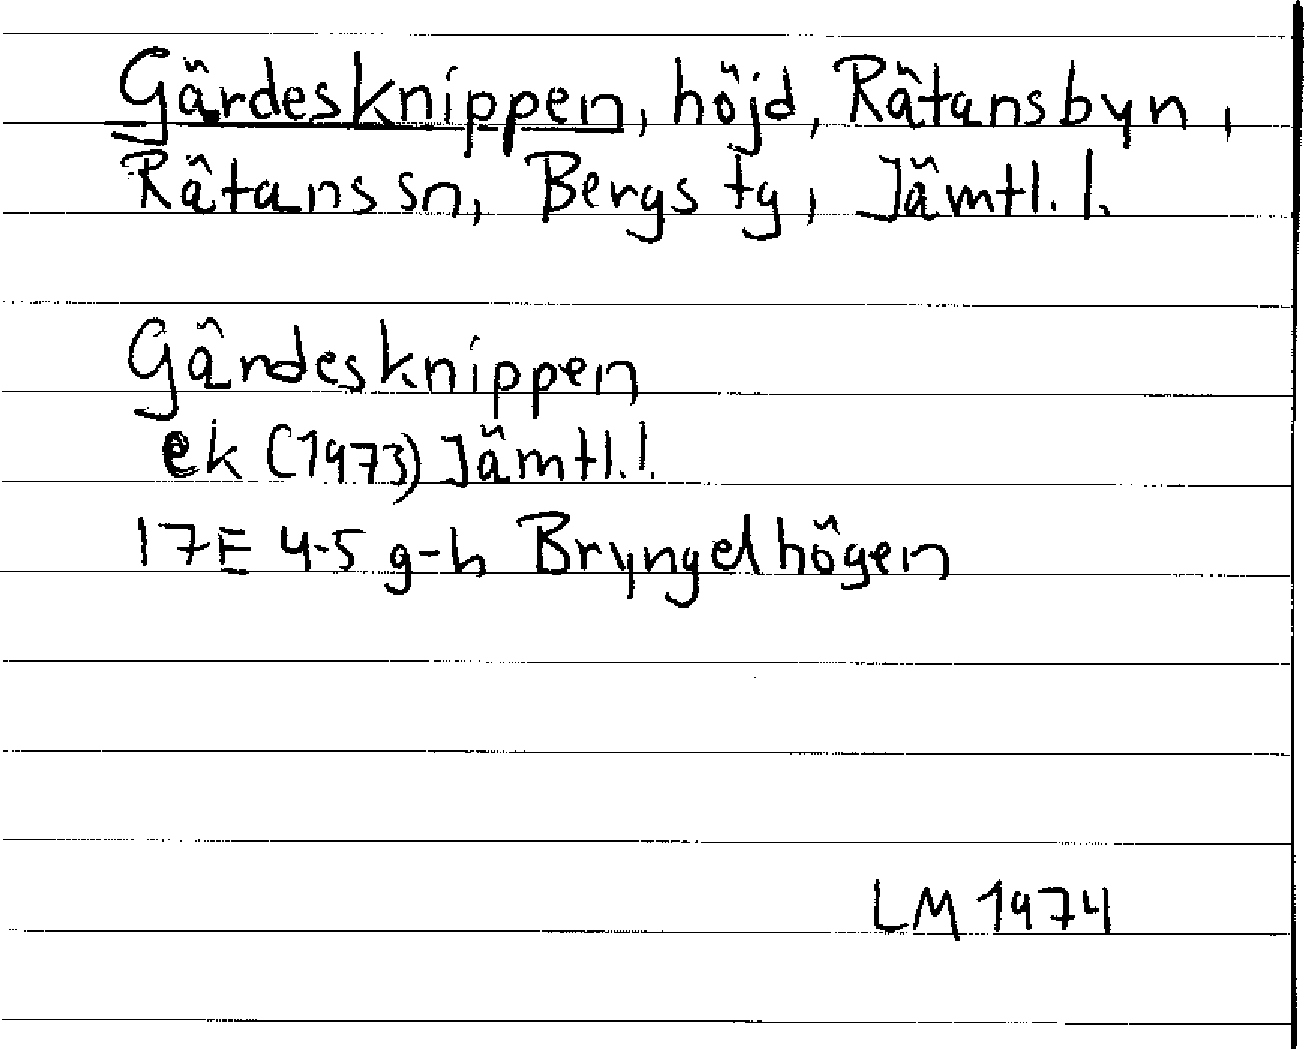 Gärdesknippen, höjd, Rätansbyn,
Rätans sn, Bergs tg, Jämtl. l.
Gärdesknippen
ek (1973) Jämtl. l.
17E 4-5 g-h Bryngelhögen
LM 1974